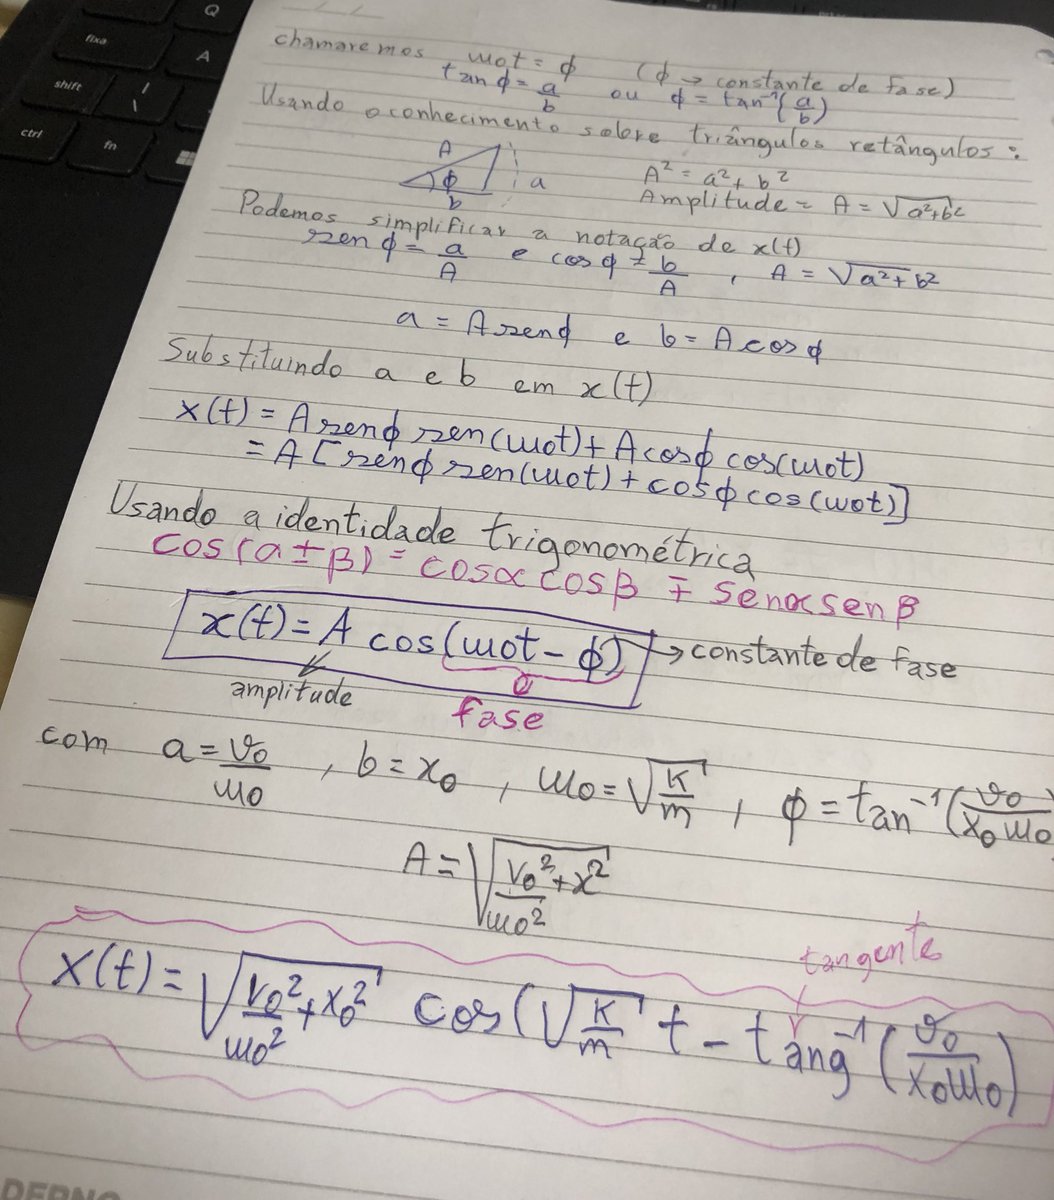 Q
fixa
A
shift
|
\
ctrl
fn
chamaremos ω0t = φ (φ → constante de fase)
tan φ = a/b ou φ = tan⁻¹(a/b)
Usando o conhecimento sobre triângulos retângulos:
A φ b a
A² = a² + b²
Amplitude = A = √(a²+b²)
Podemos simplificar a notação de x(t)
sen φ = a/A e cos φ = b/A , A = √(a²+b²)
a = A sen φ e b = A cos φ
Substituindo a e b em x(t)
x(t) = A sen φ sen(ω0t) + A cos φ cos(ω0t)
= A [sen φ sen(ω0t) + cos φ cos(ω0t)]
Usando a identidade trigonométrica
cos(α ± β) = cos α cos β ∓ sen α sen β
x(t) = A cos(ω0t - φ) → constante de fase
amplitude
fase
com a = v0/ω0 , b = x0 , ω0 = √(K/m) , φ = tan⁻¹(v0/x0ω0)
A = √(v0²/ω0² + x²)
tangente
x(t) = √(v0²/ω0² + x0²) cos(√(K/m) t - tang⁻¹(v0/x0ω0))
DERNO